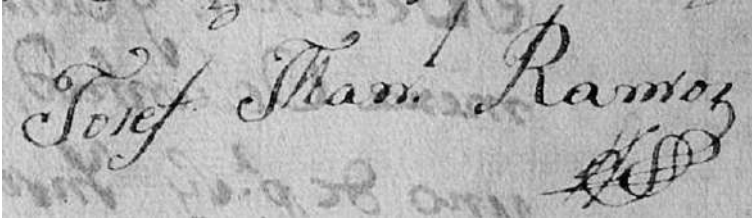 Josef Mam Ramoz